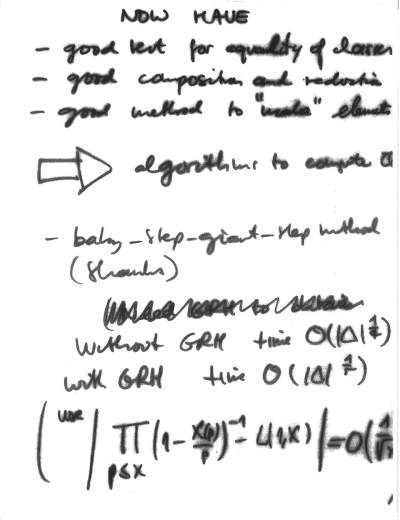 NOW HAVE
- good test for equality of classes
- good composition and reduction
- good method to "make" elements
algorithms to compute
- baby-step-giant-step method
(Shanks)
without GRH time O(|Δ|^{1/4})
with GRH time O(|Δ|^{1/5})
( use | ∏_{p≤x} (1 - χ(p)/p)^{-1} - L(1,χ) | = O(1/√